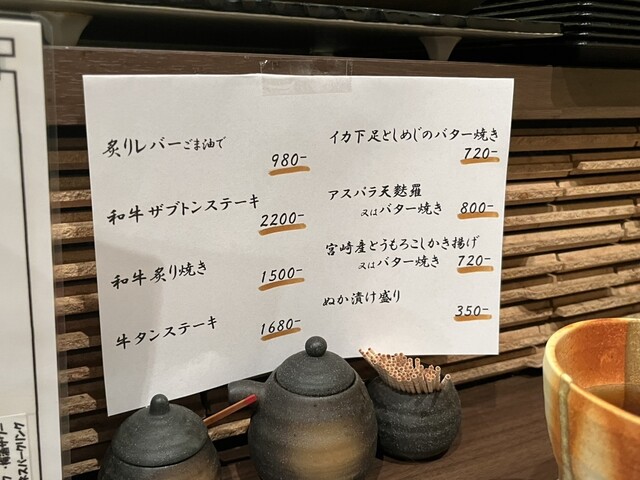 炙りレバーごま油で
980-
和牛ザブトンステーキ
2200-
和牛炙り焼き
1500-
牛タンステーキ
1680-
イカ下足としめじのバター焼き
720-
アスパラ天麩羅
又はバター焼き 800-
宮崎産とうもろこしかき揚げ
又はバター焼き 720-
ぬか漬け盛り
350-